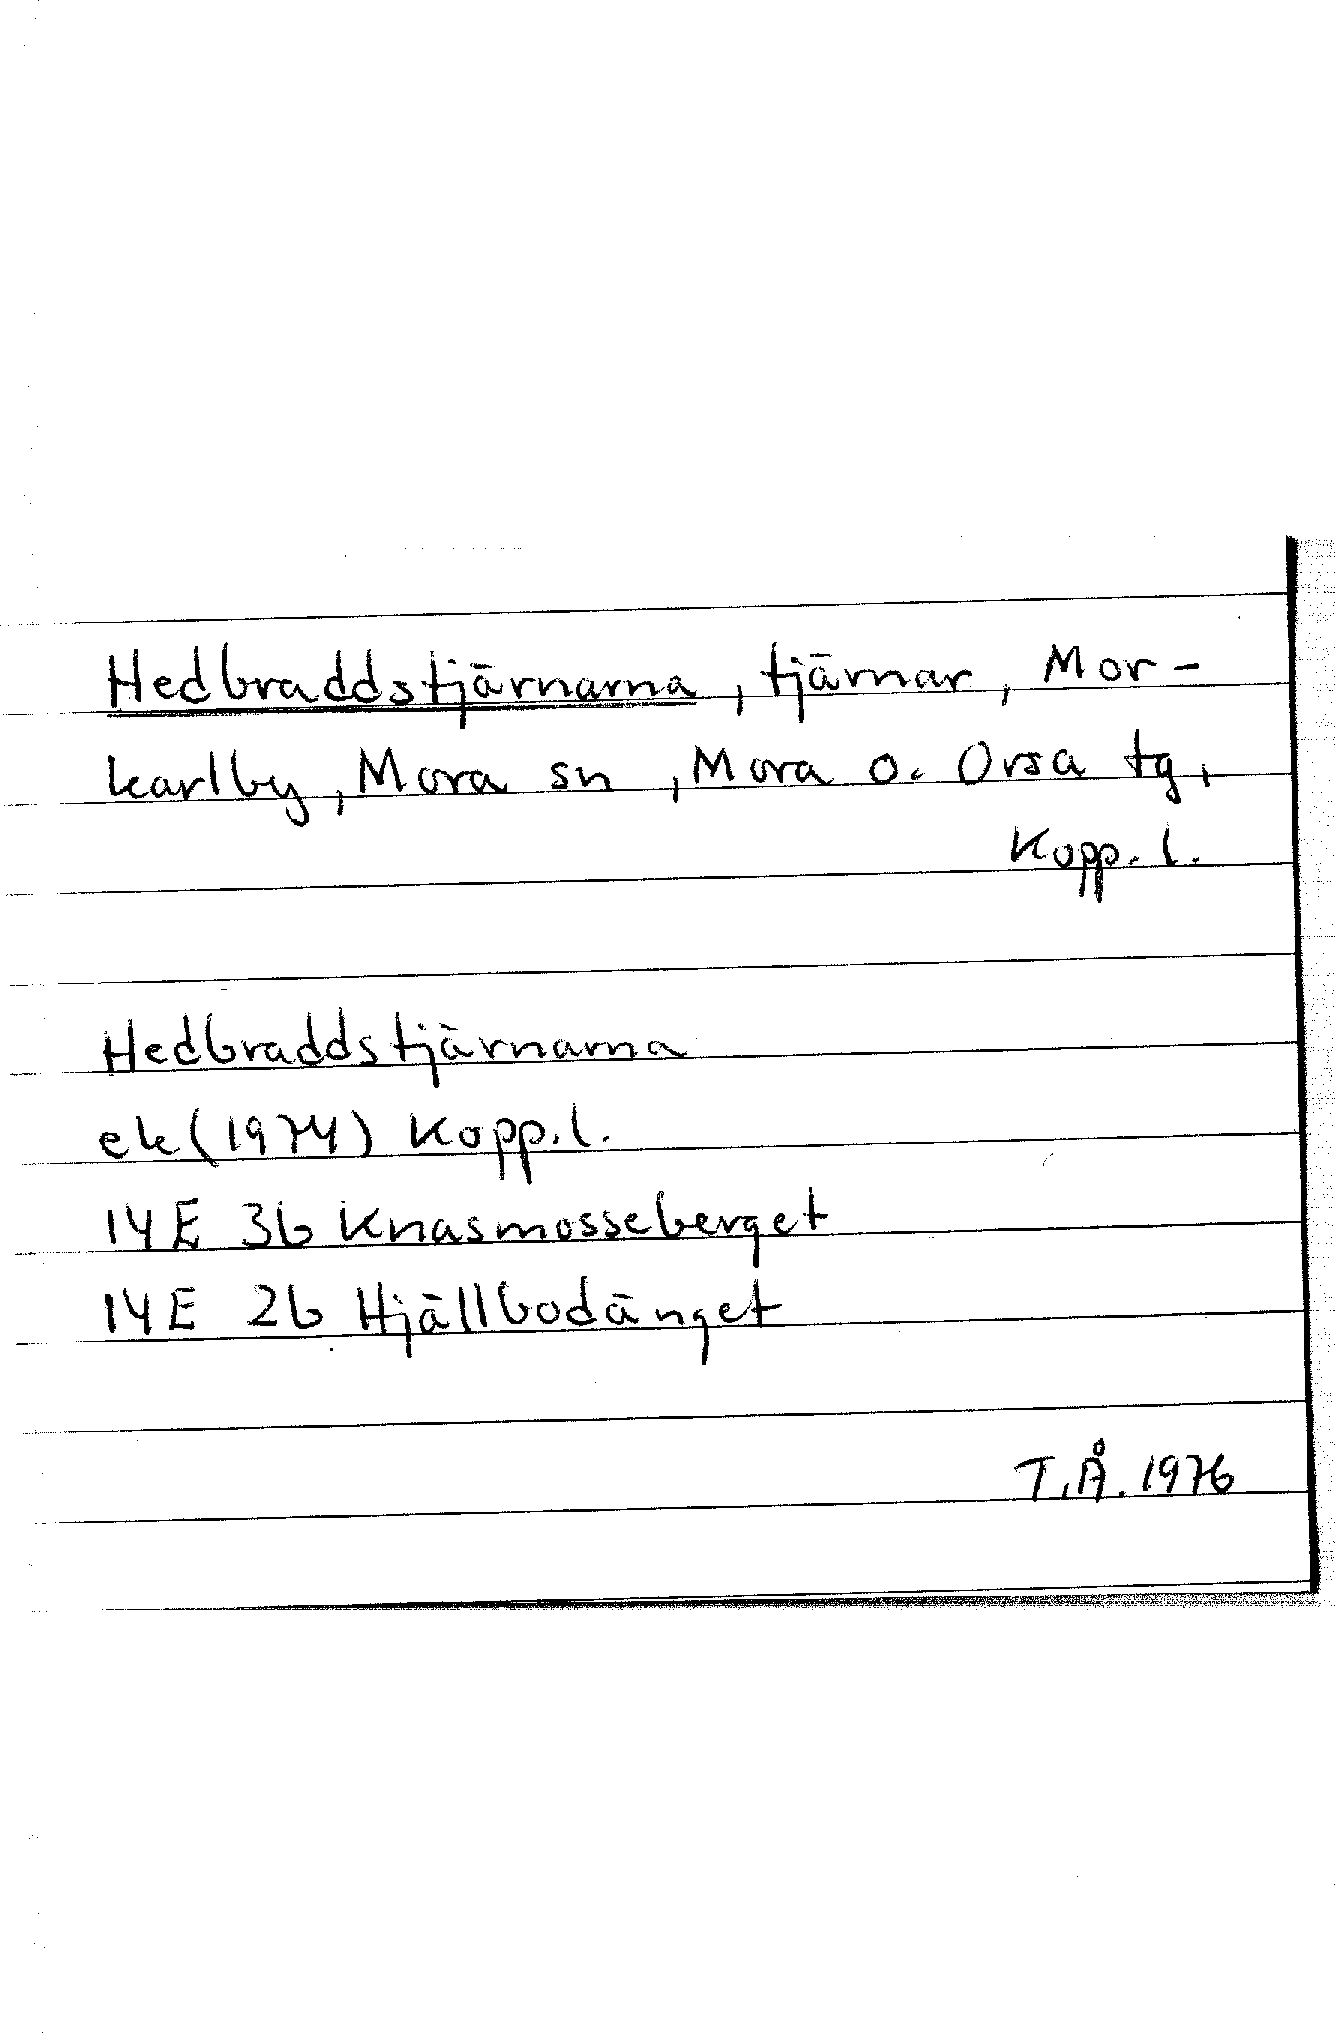 Hedbraddstjärnarna, tjärnar, Mor-
karlby, Mora sn, Mora o. Orsa tg,
Kopp. l.
Hedbraddstjärnarna
ek (1974) Kopp. l.
14E 3b Knasmosseberget
14E 2b Hjällbodänget
T.Å. 1976